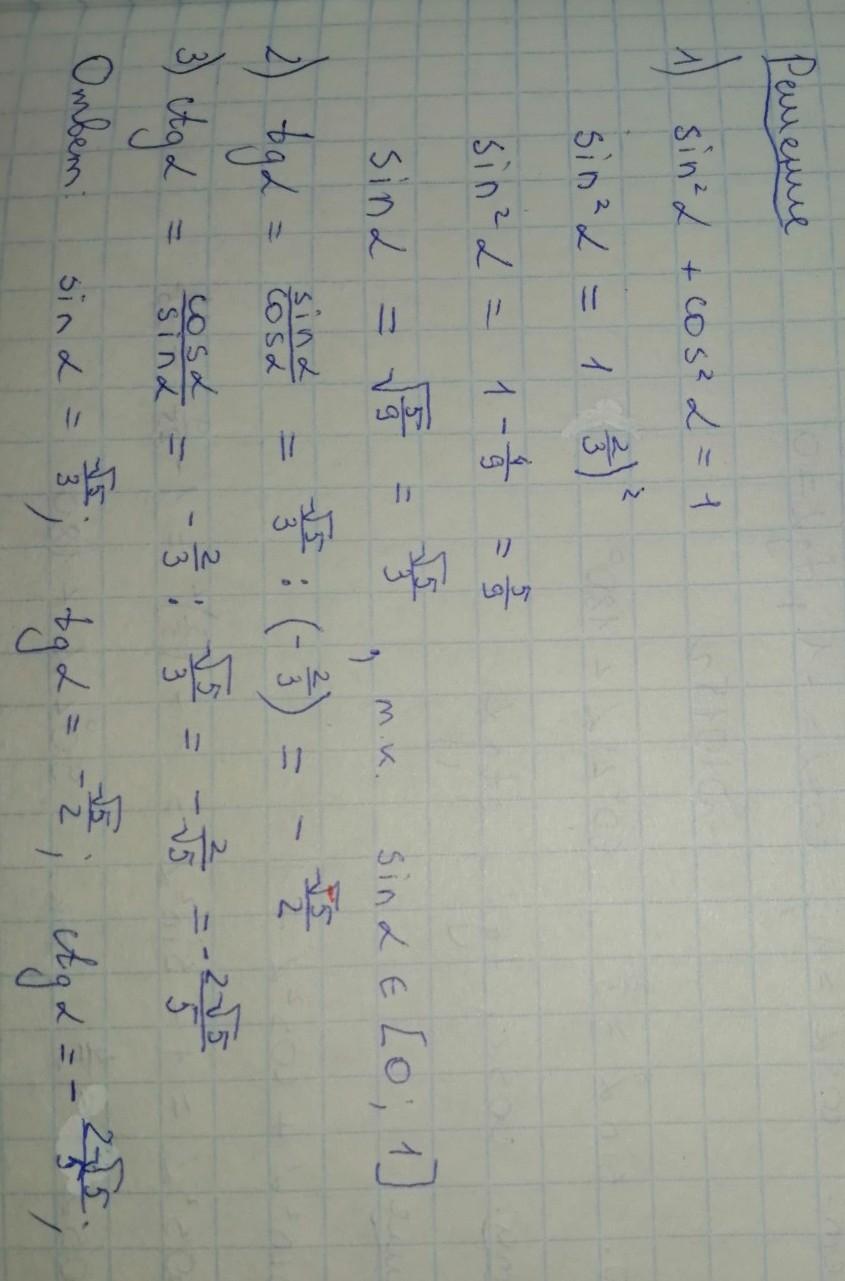 Решение
1) sin²α + cos²α = 1
sin²α = 1 2/3)²
sin²α = 1 - 4/9 = 5/9
sinα = √(5/9) = √5/3, т.к. sinα ∈ [0; 1]
2) tgα = sinα/cosα = √5/3 : (-2/3) = - √5/2
3) ctgα = cosα/sinα = -2/3 : √5/3 = -2/√5 = -2√5/5
Ответ: sinα = √5/3; tgα = -√5/2; ctgα = -2√5/5;